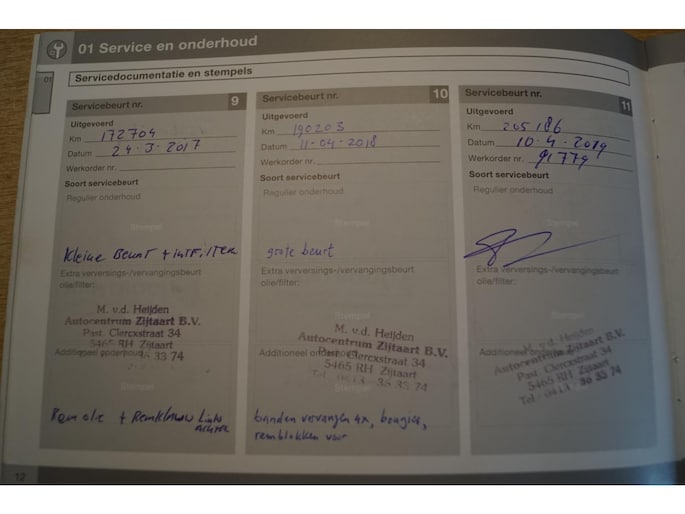 01 Service en onderhoud
01
Servicedocumentatie en stempels
Servicebeurt nr. 9
Uitgevoerd
Km 172704
Datum 24-3-2017
Werkorder nr.
Soort servicebeurt
Regulier onderhoud
Stempel
Kleine Beurt + intr, iter
Extra verversings-/vervangingsbeurt
olie/filter:
M. v.d. Heijden
Autocentrum Zijtaart B.V.
Past. Clercxstraat 34
5465 RH Zijtaart
Additioneel onderhoud 35 33 74
Stempel
Rem olie + Remklauw Links
Achter
Servicebeurt nr. 10
Uitgevoerd
Km 190203
Datum 11-04-2018
Werkorder nr.
Soort servicebeurt
Regulier onderhoud
Stempel
grote beurt
Extra verversings-/vervangingsbeurt
olie/filter:
M. v.d. Heijden
Autocentrum Zijtaart B.V.
Additioneel Past. Clercxstraat 34
5465 RH Zijtaart
Tel. 0413 - 35 33 74
banden vervangen 4x, bougies,
remblokken voor
Servicebeurt nr. 11
Uitgevoerd
Km 205186
Datum 10-4-2019
Werkorder nr. 91779
Soort servicebeurt
Regulier onderhoud
Stempel
Extra verversings-/vervangingsbeurt
olie/filter:
M. v.d. Heijden
Additioneel Autocentrum Zijtaart B.V.
Past. Clercxstraat 34
5465 RH Zijtaart
Tel. 0413 - 35 33 74
12